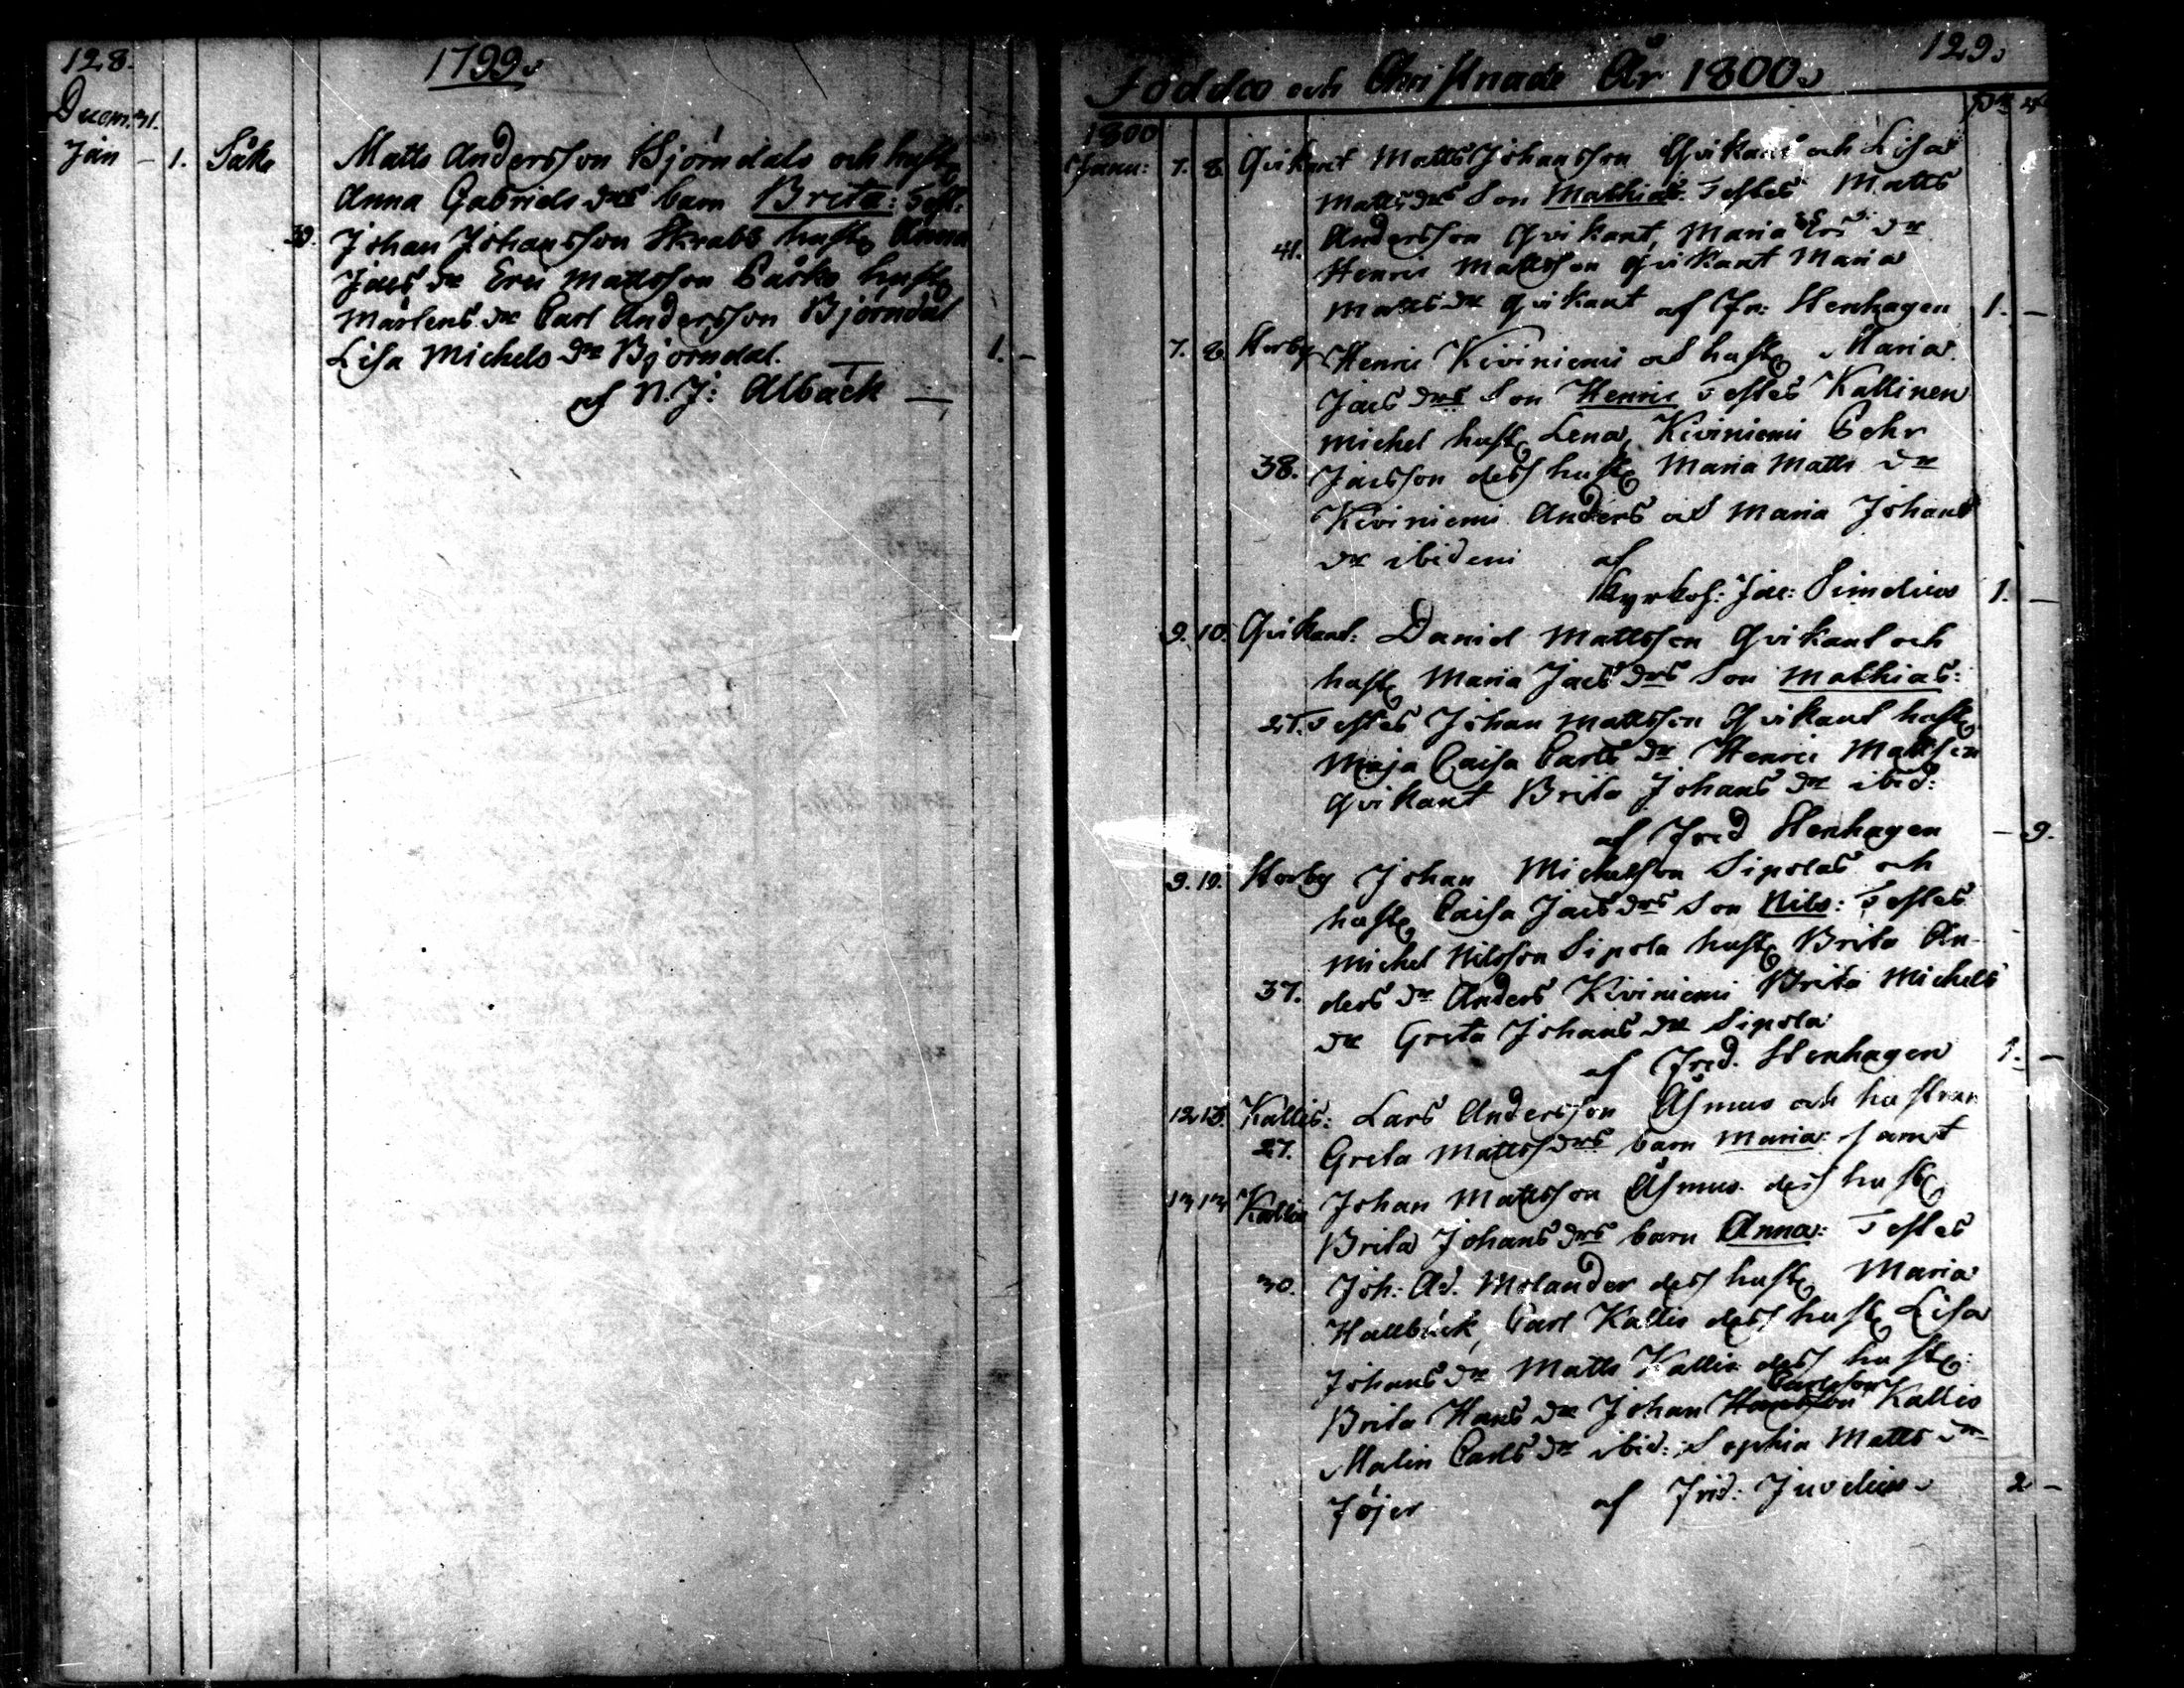 128.
1799.
Decem. 31.
Jan – 1. Såka Matts Andersson Björndals och hust.
Anna Gabriels drs barn Brita: Test:
39. Johan Johansson Skrabb hust. Anna
Jacs dr Eric Mattsson hust.
Mårtens dr Carl Andersson Björndal
Lisa Michels dr Björndal. 1. –
af N. J: Albäck –
129.
Födde och Christnade År 1800.
1800
Janu: 7. 8. Qvikant Matts Johansson Qvikant och Lisa
Matts drs Son Mathias. Testes Matts
41. Andersson Qvikant, Maria Ers dr
Henric Mattsson Qvikant Maria
Matts dr Qvikant af Fr: Stenhagen 1. –
7. 8. Storby Henric Kiviniemi och hust. Maria
Jacs drs Son Henric Testes Kallinen
Michel hust. Lena, Kiviniemi Pehr
38. Jacsson dess hust. Maria Matts dr
Kiviniemi Anders och Maria Johans
dr ibidem af
Kyrkoh: Jac: Simelius 1. –
9. 10. Qvikant: Daniel Mattsson Qvikant och
hust. Maria Jacs drs Son Mathias:
27. Testes Johan Mattsson Qvikant hust.
Maja Caisa Carls dr Henric Mattsson
Qvikant Brita Johans dr ibid:
af Fred Stenhagen – 9.
9. 10. Storby Johan Michelsson Sipolas och
hust. Caisa Jacs drs Son Nils: Testes
Michel Nilsson Sipola hust. Brita An-
37. ders dr Anders Kiviniemi Brita Michels
dr Greta Johans dr Sipola
af Fred. Stenhagen 1. –
12 13. Kallis: Lars Andersson Åsmus och hustrun
27. Greta Mattss drs barn Maria: samt
13 13 Kallis Johan Mattsson Åsmus dess hust.
Brita Johans drs barn Anna: Testes
30. Joh: Ad. Molander dess hust. Maria
Hallbäck, Carl Kallis dess hust. Lisa
Johans dr Matts Kallis dess hust:
Carlsson
Brita Hans dr Johan Hansson Kallis
Malin Carls dr ibid: Sophia Matts dr
Föjer af Frid: Juvelius 2 –